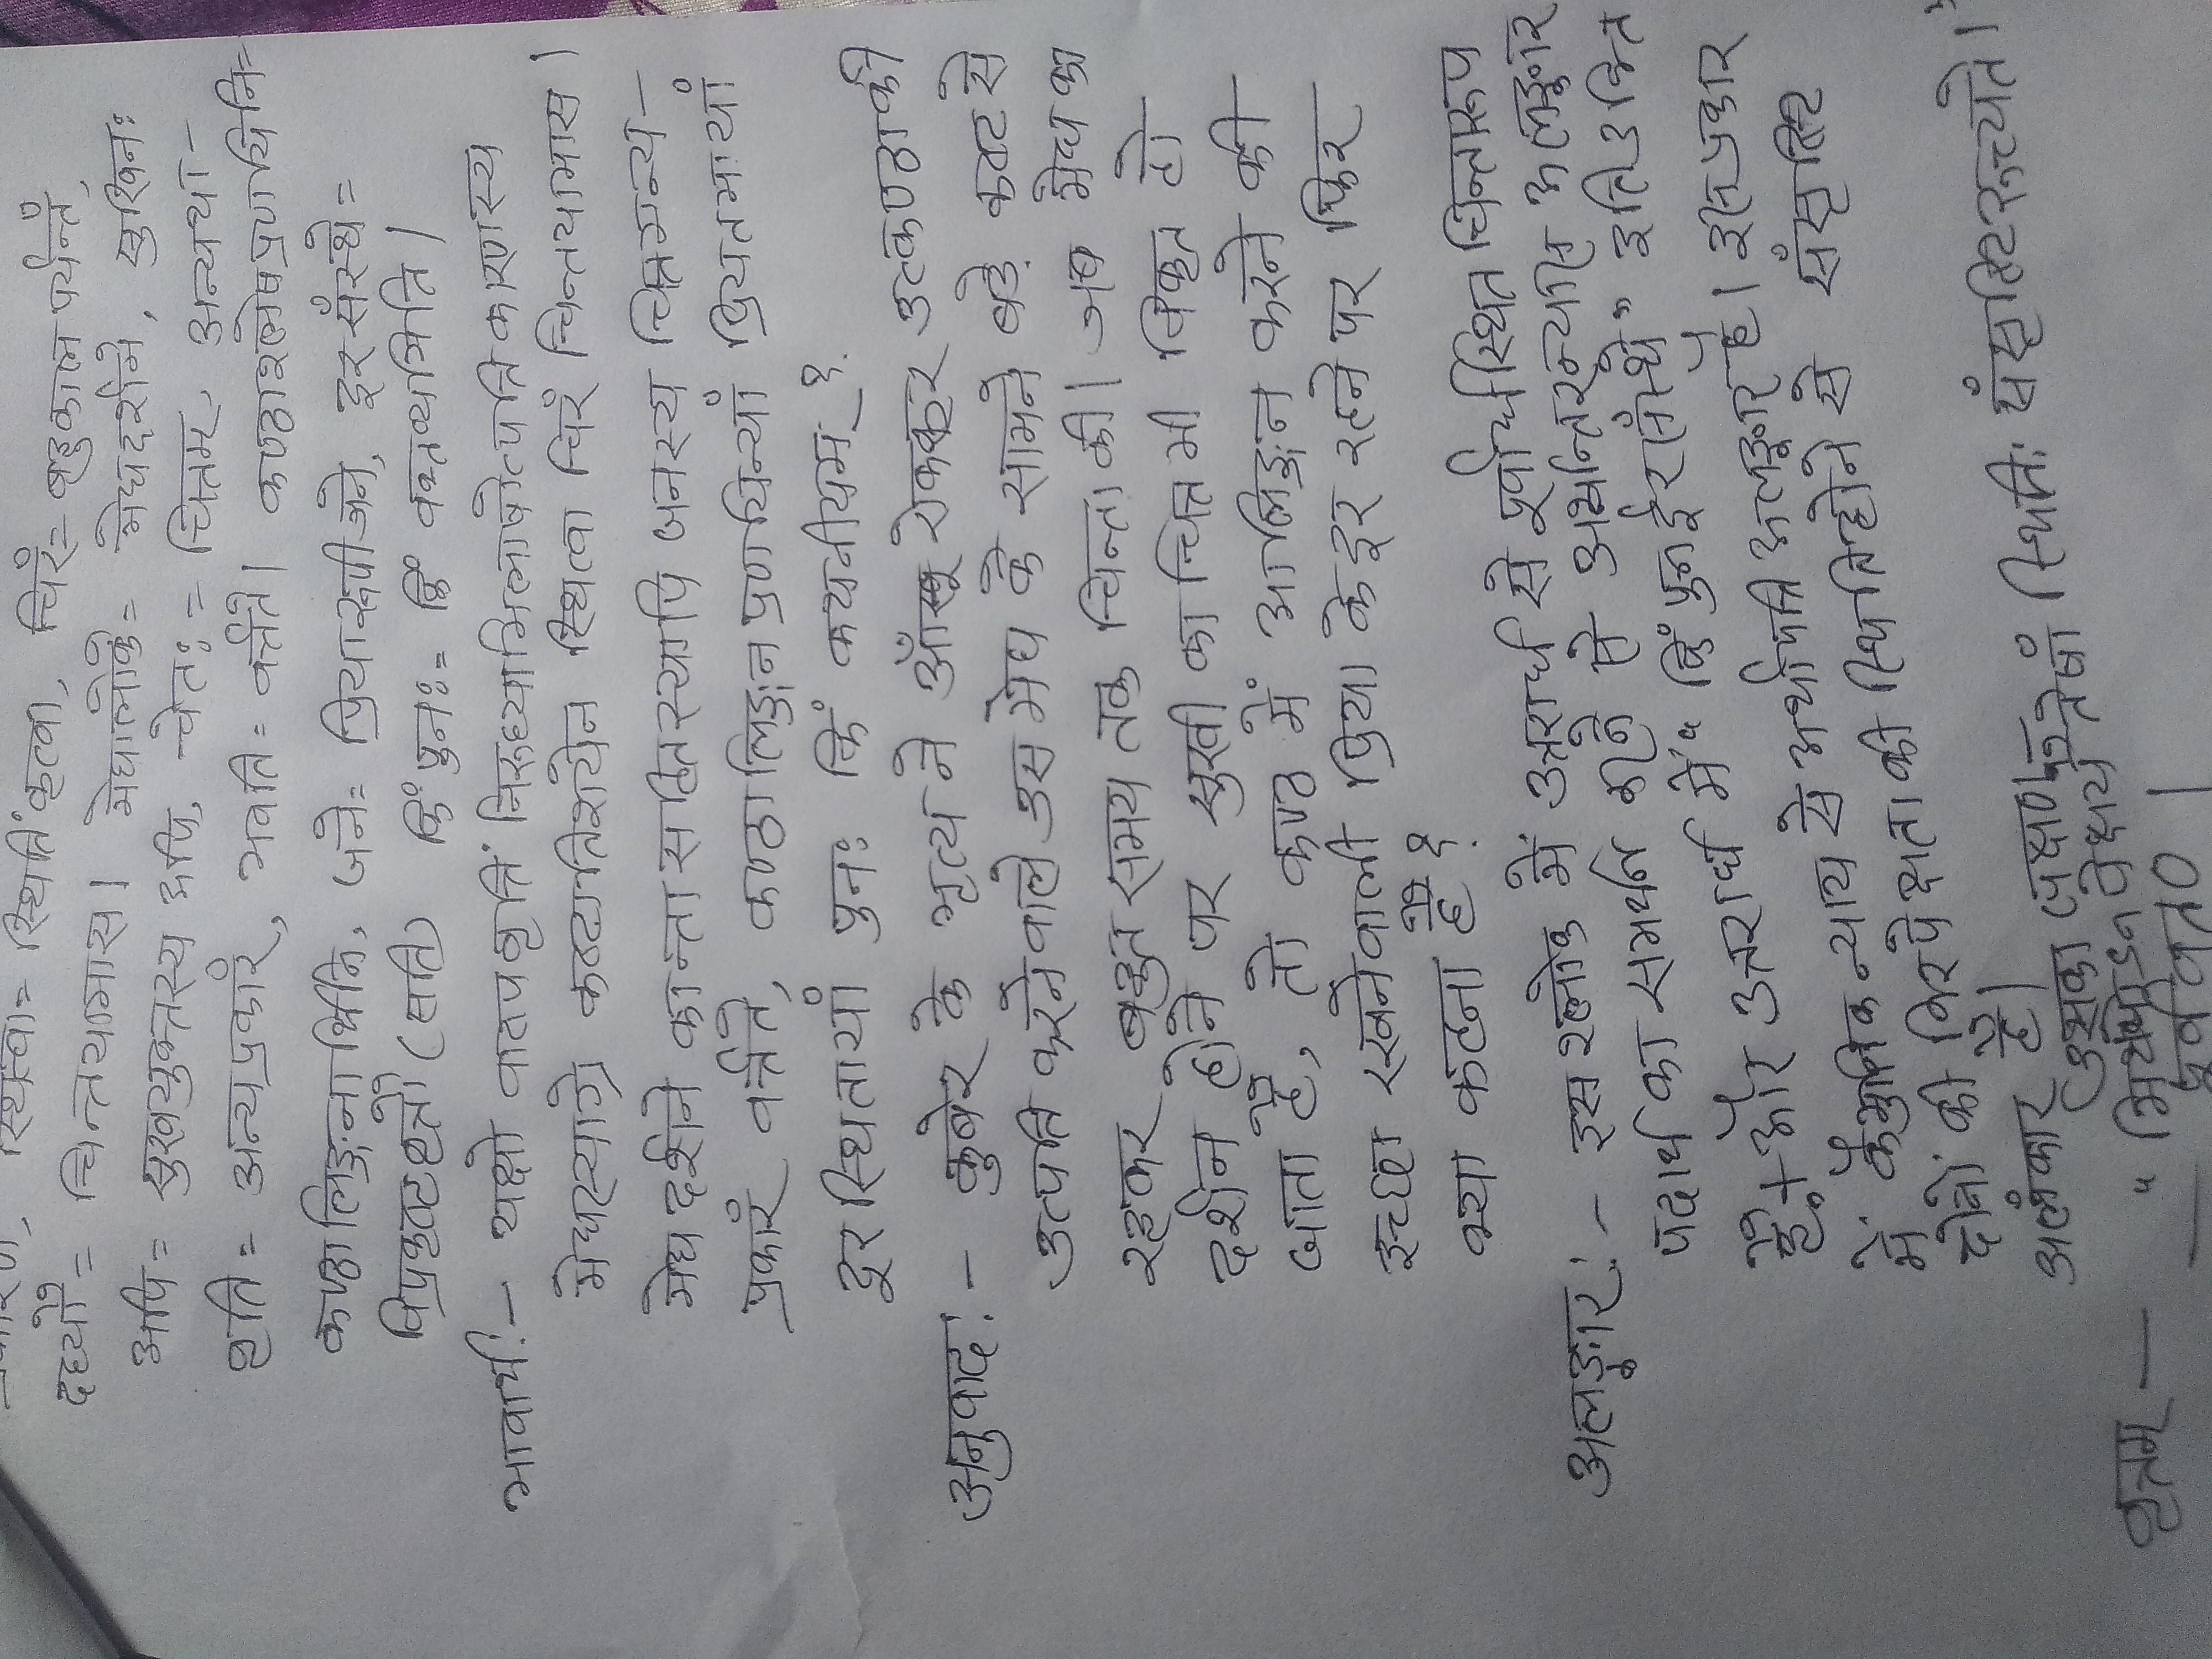 स्थित्वा= स्थितिं कृत्वा, चिरं= बहुकाल पर्यन्तं,
दध्यौ= चिन्तयामास। मेघालोके= मेघदर्शने, सुखिनः
अपि= सुखयुक्तस्य अपि, चेतः= चित्तम्, अन्यथा-
वृत्ति= अन्यप्रकारं, भवति= वर्त्तते। कण्ठाश्लेषप्रणयिनि=
कण्ठालिङ्गनार्थिनि, जने= प्रियारूपीजने, दूरसंस्थे=
विप्रकृष्टस्थे (सति) किं पुनः= किं वक्तव्यमिति।
भावार्थः- यक्षो वाष्पवृत्तिं निरुध्याभिलाषोत्पत्तिकारणस्य
मेघस्याग्रे कष्टातिशयेन स्थित्वा चिरं चिन्तयामास।
मेघ दर्शने कान्तासहितस्यापि जनस्य चित्तमन्य-
प्रकारं वर्त्तते, कण्ठालिङ्गन प्रणयिन्यां प्रियतमायां
दूरस्थितायां पुनः किं कथनीयम्?
अनुवादः- कुबेर के भृत्य ने आँसू रोककर उत्कण्ठा की
उत्पत्ति करनेवाले उस मेघ के सामने बड़े कष्ट से
रहकर बहुत समय तक चिन्ता की। जब मेघ का
दर्शन होने पर सुखी का चित्त भी विकृत हो
जाता है, तो कण्ठ में आलिङ्गन करने की
इच्छा रखनेवाली प्रिया के दूर रहने पर फिर
क्या कहना है?
अलङ्कारः- इस श्लोक में उत्तरार्ध से पूर्वार्धस्थित चिन्तारूप
पदार्थ का समर्थन होने से अर्थान्तरन्यास अलङ्कार
है। और उत्तरार्ध में "किं पुनर्दूरसंस्थे" इति उक्ति
में कैमुतिक न्याय से अर्थापत्ति अलङ्कार है। इस प्रकार
दोनों की निरपेक्षता की स्थिति होने से संसृष्टि
अलंकार है। उसका लक्षण है-
"मिथोऽनपेक्षयैतेषां स्थितिः संसृष्टिरुच्यते।"
वृत्तम् — पूर्ववत्०।